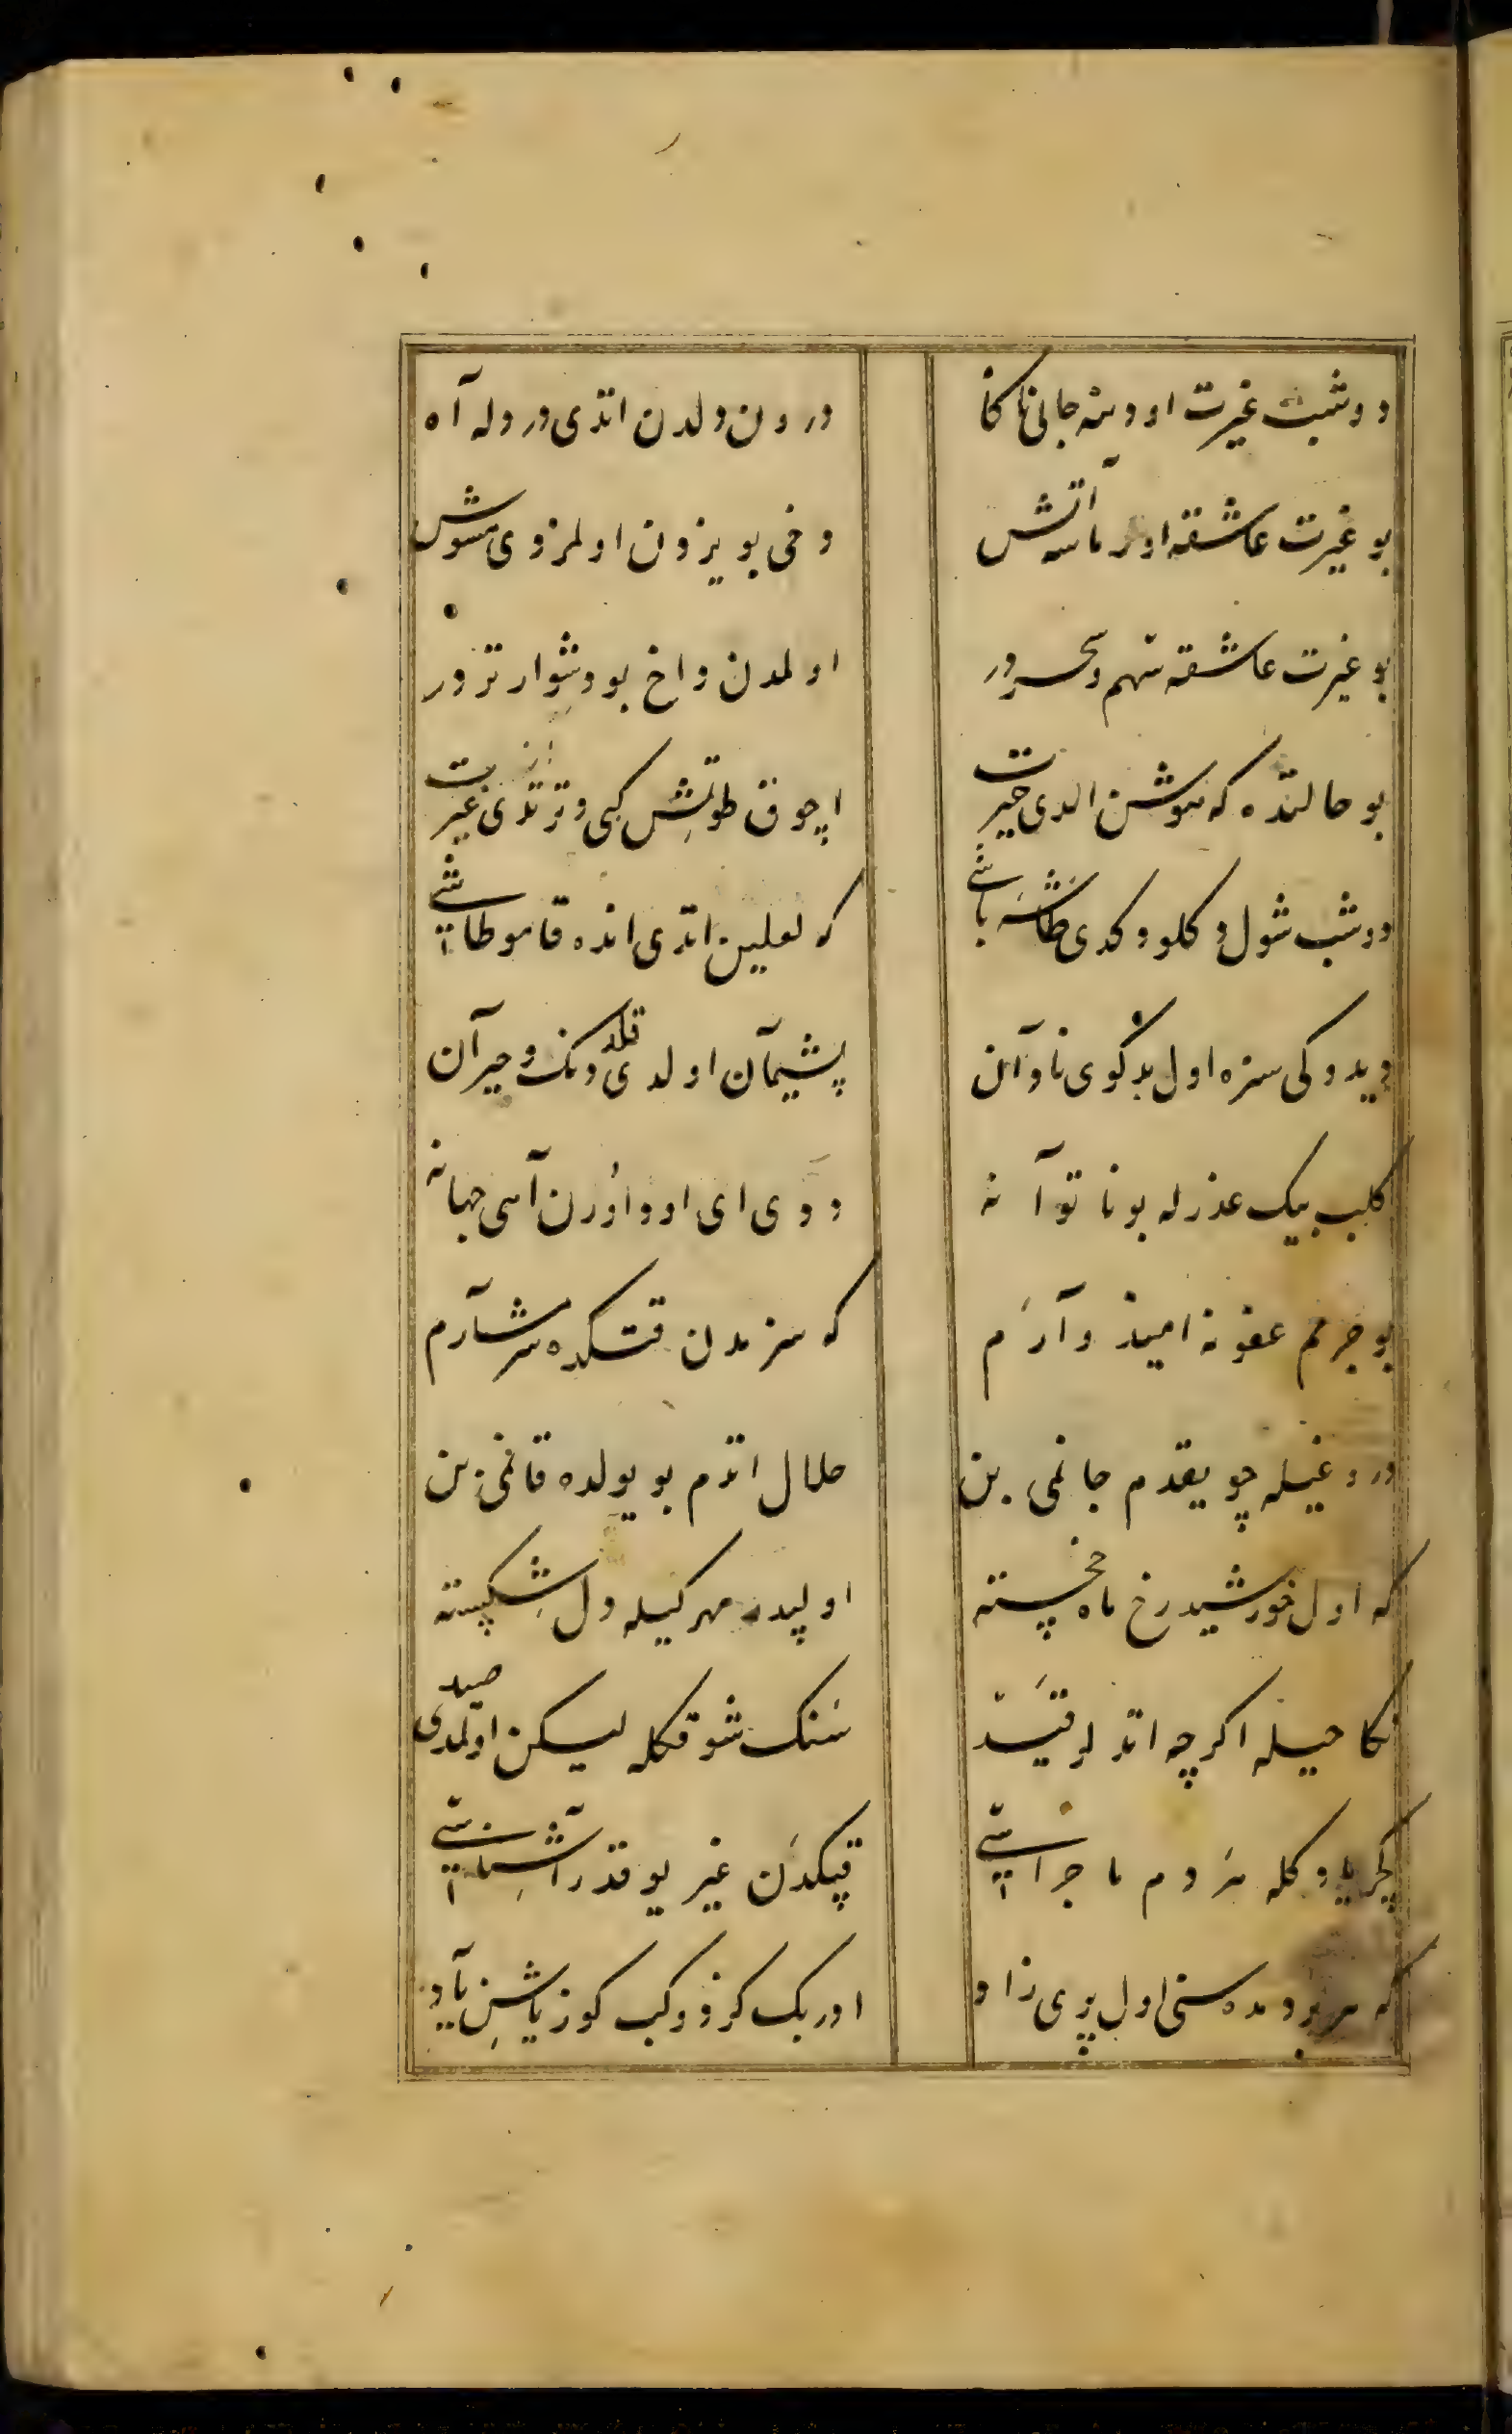 دوشب غیرت اودینه جانی ناکاه
درون دلدن اتدی درد له آه
بو غیرت عاشقه اولر آتش
دخی بو یزدن اولمز دی مشوش
بو غیرت عاشقه هم
اولمدن داخ بو دشوار تر در
بو حالتده که هوشن الدی حیرت
اچوق طوتش کبی دتر تدی غیرت
دوشب شول دکلو دکدی طاشه باشی
که لعلین اتدی انده قامو طاشی
دیدوکی سزه اول بدکوی نادان
پشیمان اولدی قلدی دنک و حیران
کلب بیک عذرله بو ناتوانه
ددی ای اود اورن آسی جهانه
بو جرمم عفونه امید وارم
که سزدن قتکده شرشارم
دروغیله چو یقدم جانمی بن
حلال اتدم بو یولده قانمی بن
که اول خورشید رخ ماه خجسته
اولیدر مهرکیله دل شکسته
نکاحیله اکرچه اتدلر قید
سنک شوقکله لیکن اولدی صید
کجر یادوکله هر دم ماجراسی
قپکدن غیر یوقدر آشناسی
که هر بردمده سنی اول پری زاد
اوربک کزدوکب کوز یاشن یاد